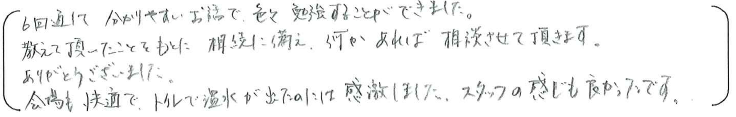 6回通して分かりやすいお話で、色々勉強することができました。
教えて頂いたことをもとに相続に備え、何かあれば相談させて頂きます。
ありがとうございました。
会場も快適で、トイレで温水が出たのには感激しました。スタッフの感じも良かったです。